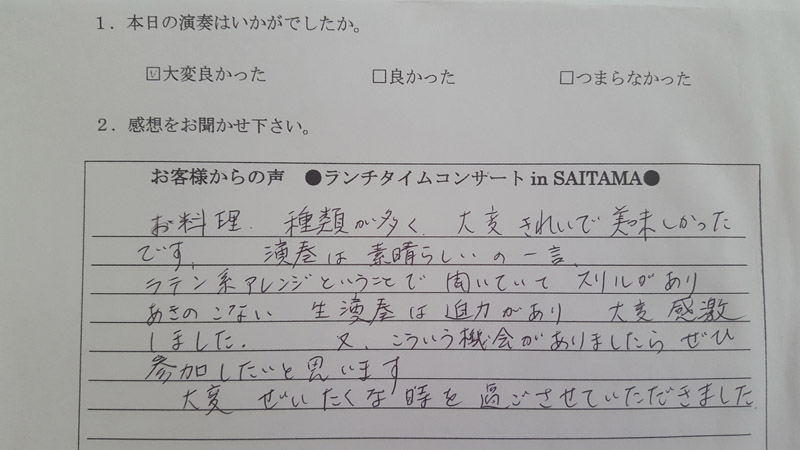 1．本日の演奏はいかがでしたか。
☑大変良かった □良かった □つまらなかった
2．感想をお聞かせ下さい。
お客様からの声 ●ランチタイムコンサート in SAITAMA●
お料理、種類が多く、大変きれいで美味しかった
です。 演奏は素晴らしいの一言、
ラテン系アレンジということで聞いていてスリルがあり
あきのこない 生演奏は迫力があり 大変感激
しました。 又、こういう機会がありましたらぜひ
参加したいと思います
大変 ぜいたくな時を過ごさせていただきました